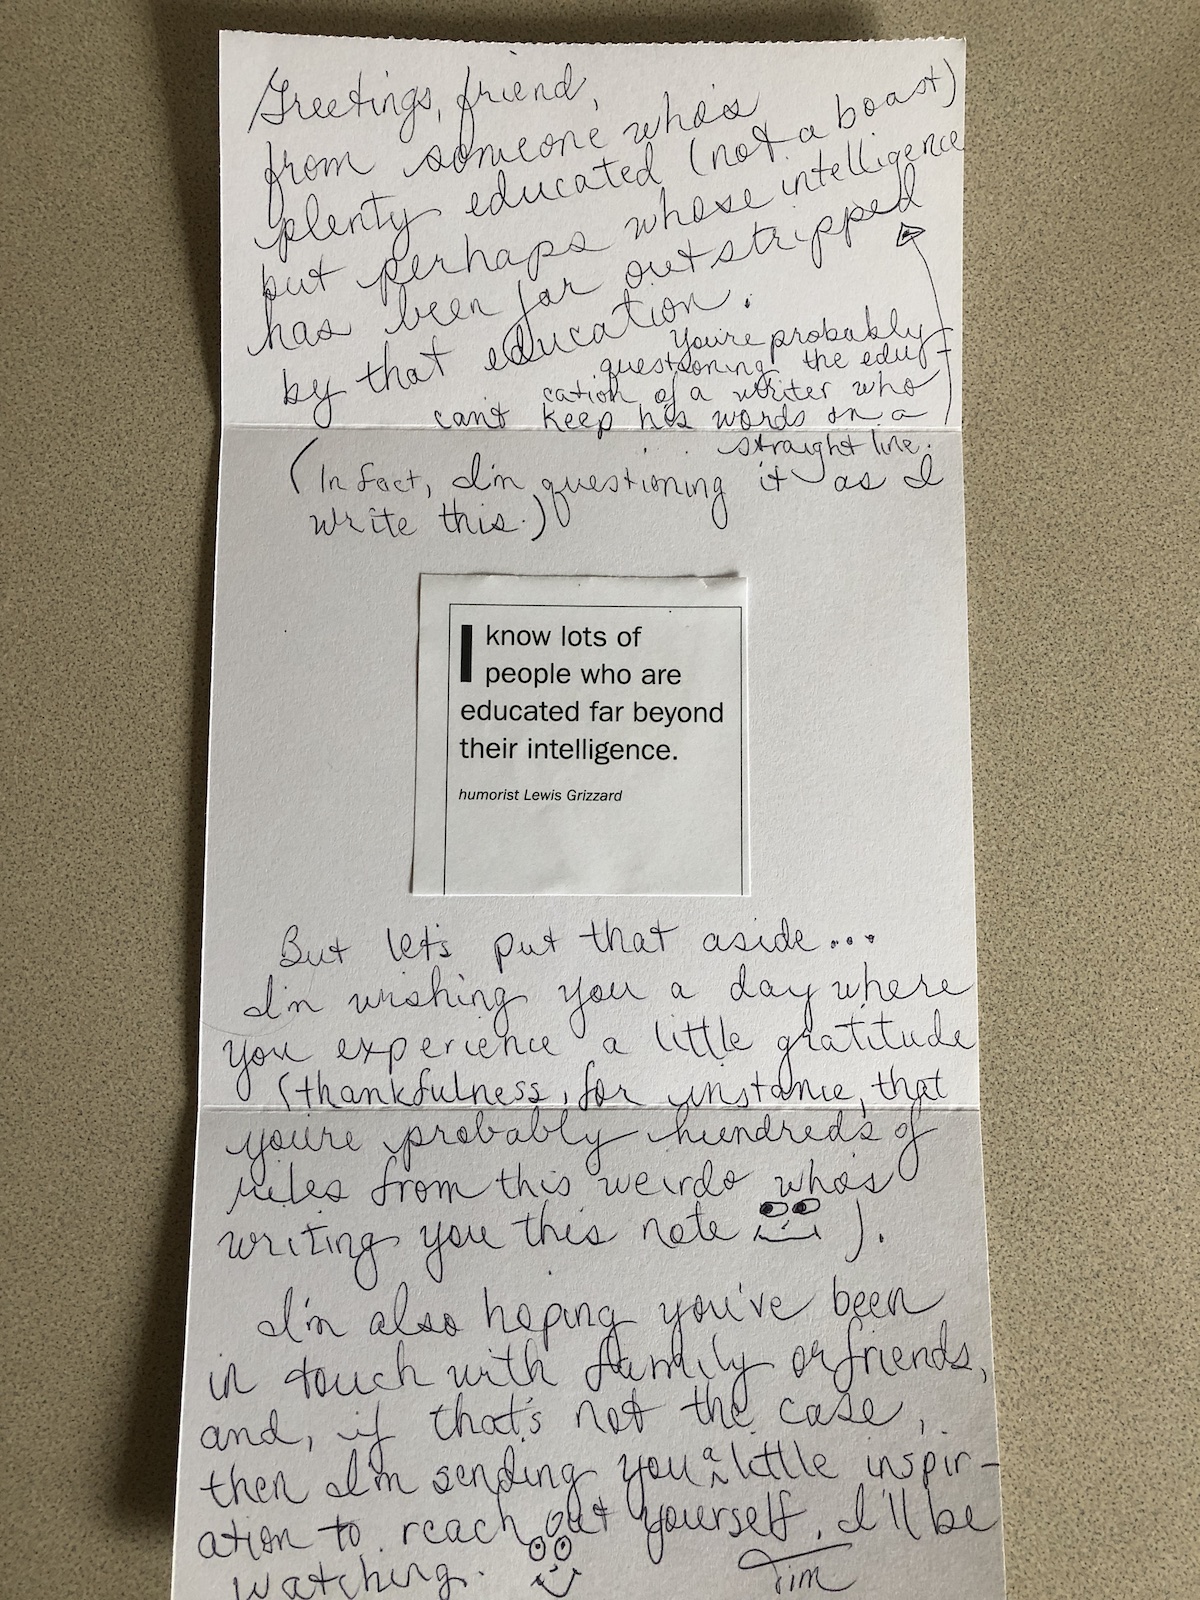 Greetings, friend,
from someone who's
plenty educated (not a boast)
but perhaps whose intelligence
has been far outstripped
by that education.
You're probably
questioning the edu-
cation of a writer who
can't keep his words in a
straight line.
(In fact, I'm questioning it as I
write this.)
I know lots of
people who are
educated far beyond
their intelligence.
humorist Lewis Grizzard
But let's put that aside...
I'm wishing you a day where
you experience a little gratitude
(thankfulness, for instance, that
you're probably hundreds of
miles from this weirdo who's
writing you this note ).
I'm also hoping you've been
in touch with family or friends,
and, if that's not the case,
then I'm sending you a little inspir-
ation to reach out yourself. I'll be
watching.
Tim